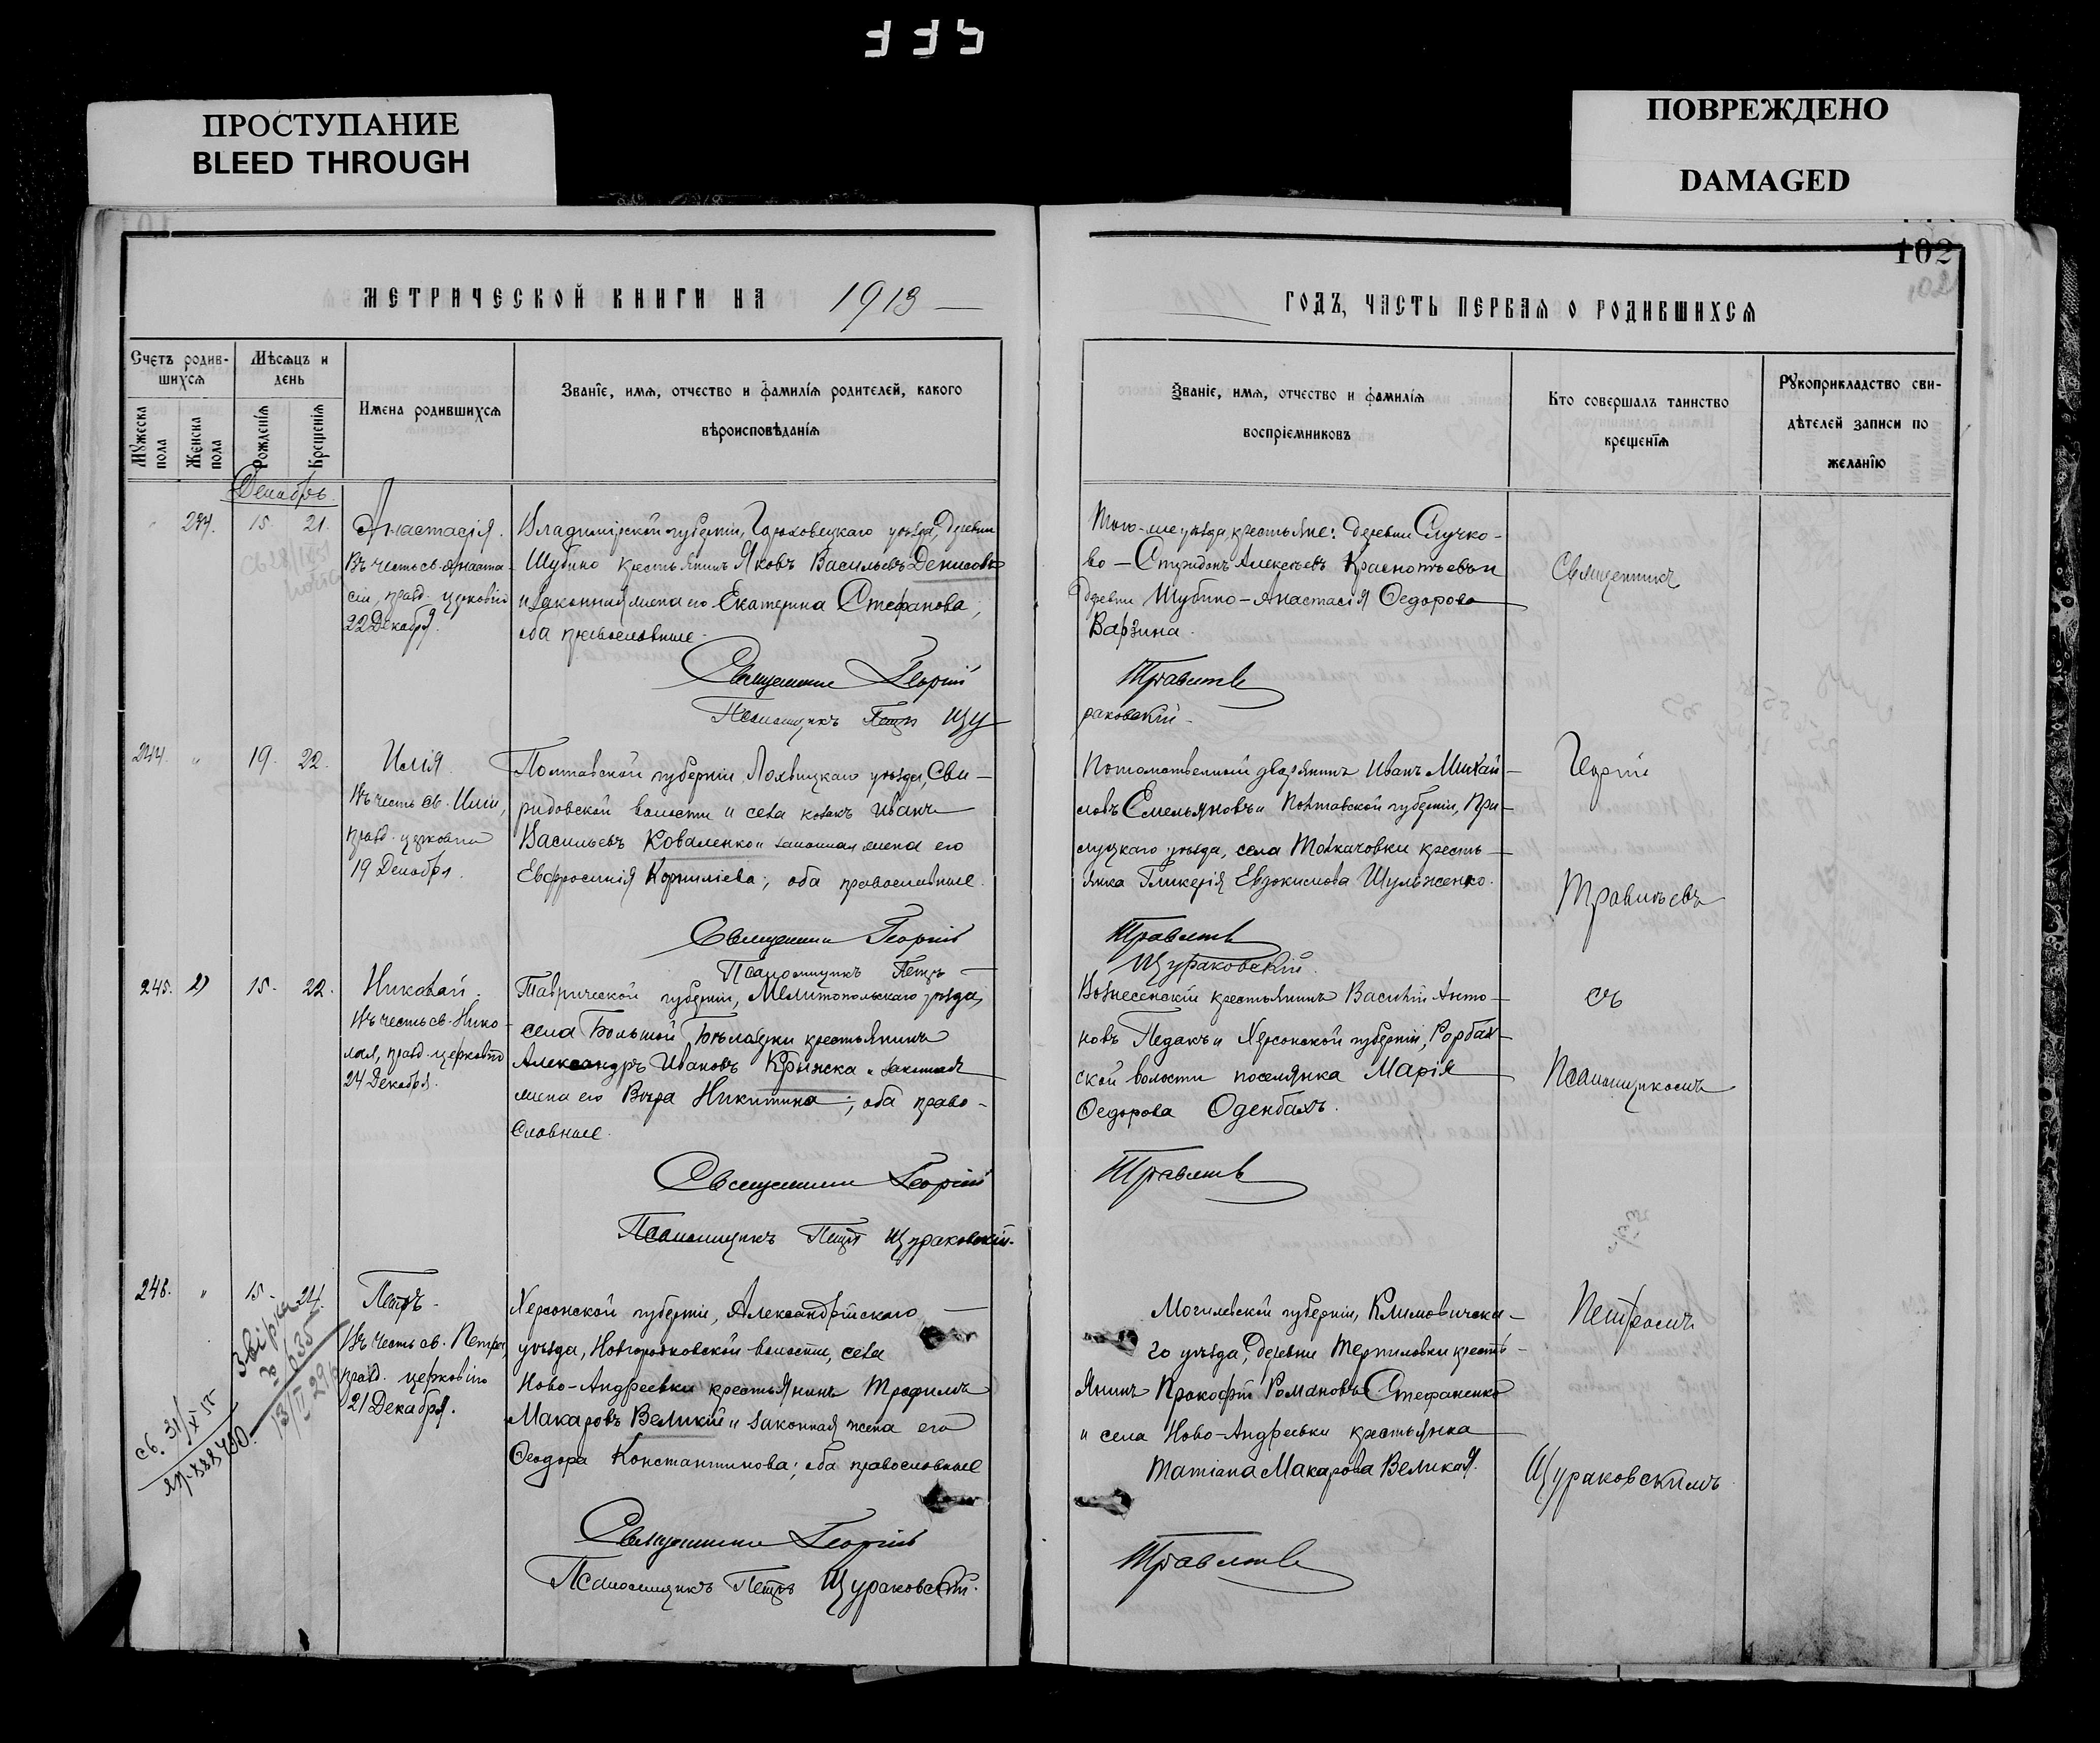 ПРОСТУПАНИЕ
BLEED THROUGH
ПОВРЕЖДЕНО
DAMAGED
102
МЕТРИЧЕСКОЙ КНИГИ НА 1913
ГОДЪ, ЧАСТЬ ПЕРВАЯ О РОДИВШИХСЯ
Счетъ родив-
шихся
Мѣсяцъ и
день
Мужеска пола
Женска пола
Рожденія
Крещенія
Имена родившихся
Званіе, имя, отчество и фамилія родителей, какого
вѣроисповѣданія
Званіе, имя, отчество и фамилія
воспріемниковъ
Кто совершалъ таинство
крещенія
Рукоприкладство сви-
дѣтелей записи по
желанію
Декабрь
234. 15. 21. Анастасія.
Въ честь св. Анаста-
сіи, празд. церковію
22 Декабря.
Владимірской губерніи, Гороховецкаго уѣзда, деревни
Шубино крестьянинъ Яковъ Васильевъ Денисовъ
и законная жена его Екатерина Стефанова,
оба православные.
Священникъ Георгій
Псаломщикъ Петръ Щу
Того-же уѣзда, крестьяне: деревни Случко-
во - Спиридонъ Алексѣевъ и
деревни Шубино - Анастасія Ѳедорова
Варзина.
Травинъ
раковскій.
Священникъ
244. " 19. 22. Илія.
Въ честь св. Иліи,
празд. церковію
19 Декабря.
Полтавской губерніи, Лохвицкаго уѣзда, Сви-
ридовской волости и села козакъ Иванъ
Васильевъ Коваленко и законная жена его
Евфросинія Корниліева; оба православные.
Священникъ Георгій
Псаломщикъ Петръ
Потомственный дворянинъ Иванъ Михай-
ловъ Емельяновъ и Полтавской губерніи, При-
лукскаго уѣзда, села Толкачовки кресть-
янка Гликерія Евдокимова Шульженко.
Щураковскій.
Георгій
245. " 15. 22. Николай.
Въ честь св. Нико-
лая, празд. церковію
24 Декабря.
Таврической губерніи, Мелитопольскаго уѣзда,
села Большой Бѣлозерки крестьянинъ
Александръ Ивановъ Крыжка и законная
жена его Вѣра Никитина; оба право-
славные.
Священникъ Георгій
Псаломщикъ Петръ Щураковскій.
Вознесенскій крестьянинъ Василій Анто-
новъ Педакъ и Херсонской губерніи, Рорбах-
ской волости поселянка Марія
Ѳедорова Оденбахъ.
съ
Псаломщикомъ
246. " 15. 24. Петръ.
Въ честь св. Петра,
празд. церковію
21 Декабря.
Херсонской губерніи, Александрійскаго
уѣзда, Новгородковской волости, села
Ново-Андреевки крестьянинъ Трофимъ
Макаровъ Великій и законная жена его
Ѳеодора Константинова; оба православные
Священникъ Георгій
Псаломщикъ Петръ Щураковскій.
Могилевской губерніи, Климовичска-
го уѣзда, деревни Терпиловки кресть-
янинъ Прокофій Романовъ Стефаненко
и села Ново-Андреевки крестьянка
Татіана Макарова Великая.
Петромъ
Щураковскимъ